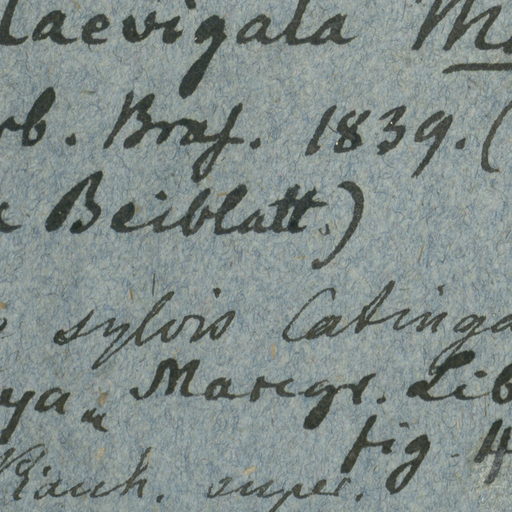 laevigata M
rb. Bras. 1839. (
Beiblatt.)
sylvis Catinga
ya" Marcgr. Lib
fig. 4
Riach. super.